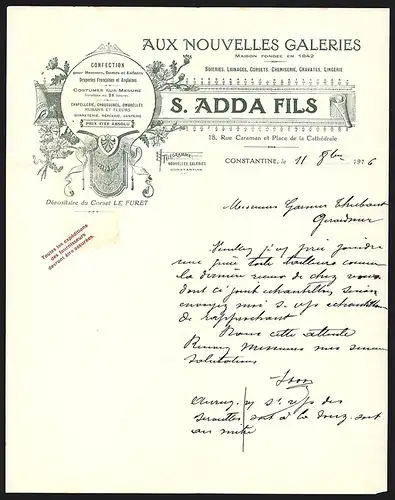 AUX NOUVELLES GALERIES
MAISON FONDÉE EN 1842
SOIERIES, LAINAGES, CORSETS, CHEMISERIE, CRAVATES, LINGERIE
CONFECTION
pour Hommes, Dames et Enfants
Draperies Françaises et Anglaises
COSTUMES SUR MESURE
livrables en 24 heures
CHAPELLERIE, CHAUSSURES, OMBRELLES
RUBANS ET FLEURS
BONNETERIE, MERCERIE, GANTERIE
PRIX FIXE ABSOLU
S. ADDA FILS
18, Rue Caraman et Place de la Cathédrale
TÉLÉGRAMMES
NOUVELLES GALERIES
CONSTANTINE
CONSTANTINE, le 11 8bre 1916
Dépositaire du Corset LE FURET
Toutes les expéditions
des fournisseurs
devront être assurées.
Messieurs Garnier Thiebaut
Gerardmer
Veuillez j'vs prie joindre
une pièce toile tailleurs comme
la dernière reçue de chez vous
dont ci joint echantillon, sinon
envoyez moi s. vp echantillon
se rapprochant
Dans cette attente
Recevez Messieurs mes sinceres
salutations
vs s. vp des
serviettes soit à la douz. soit
au mètre